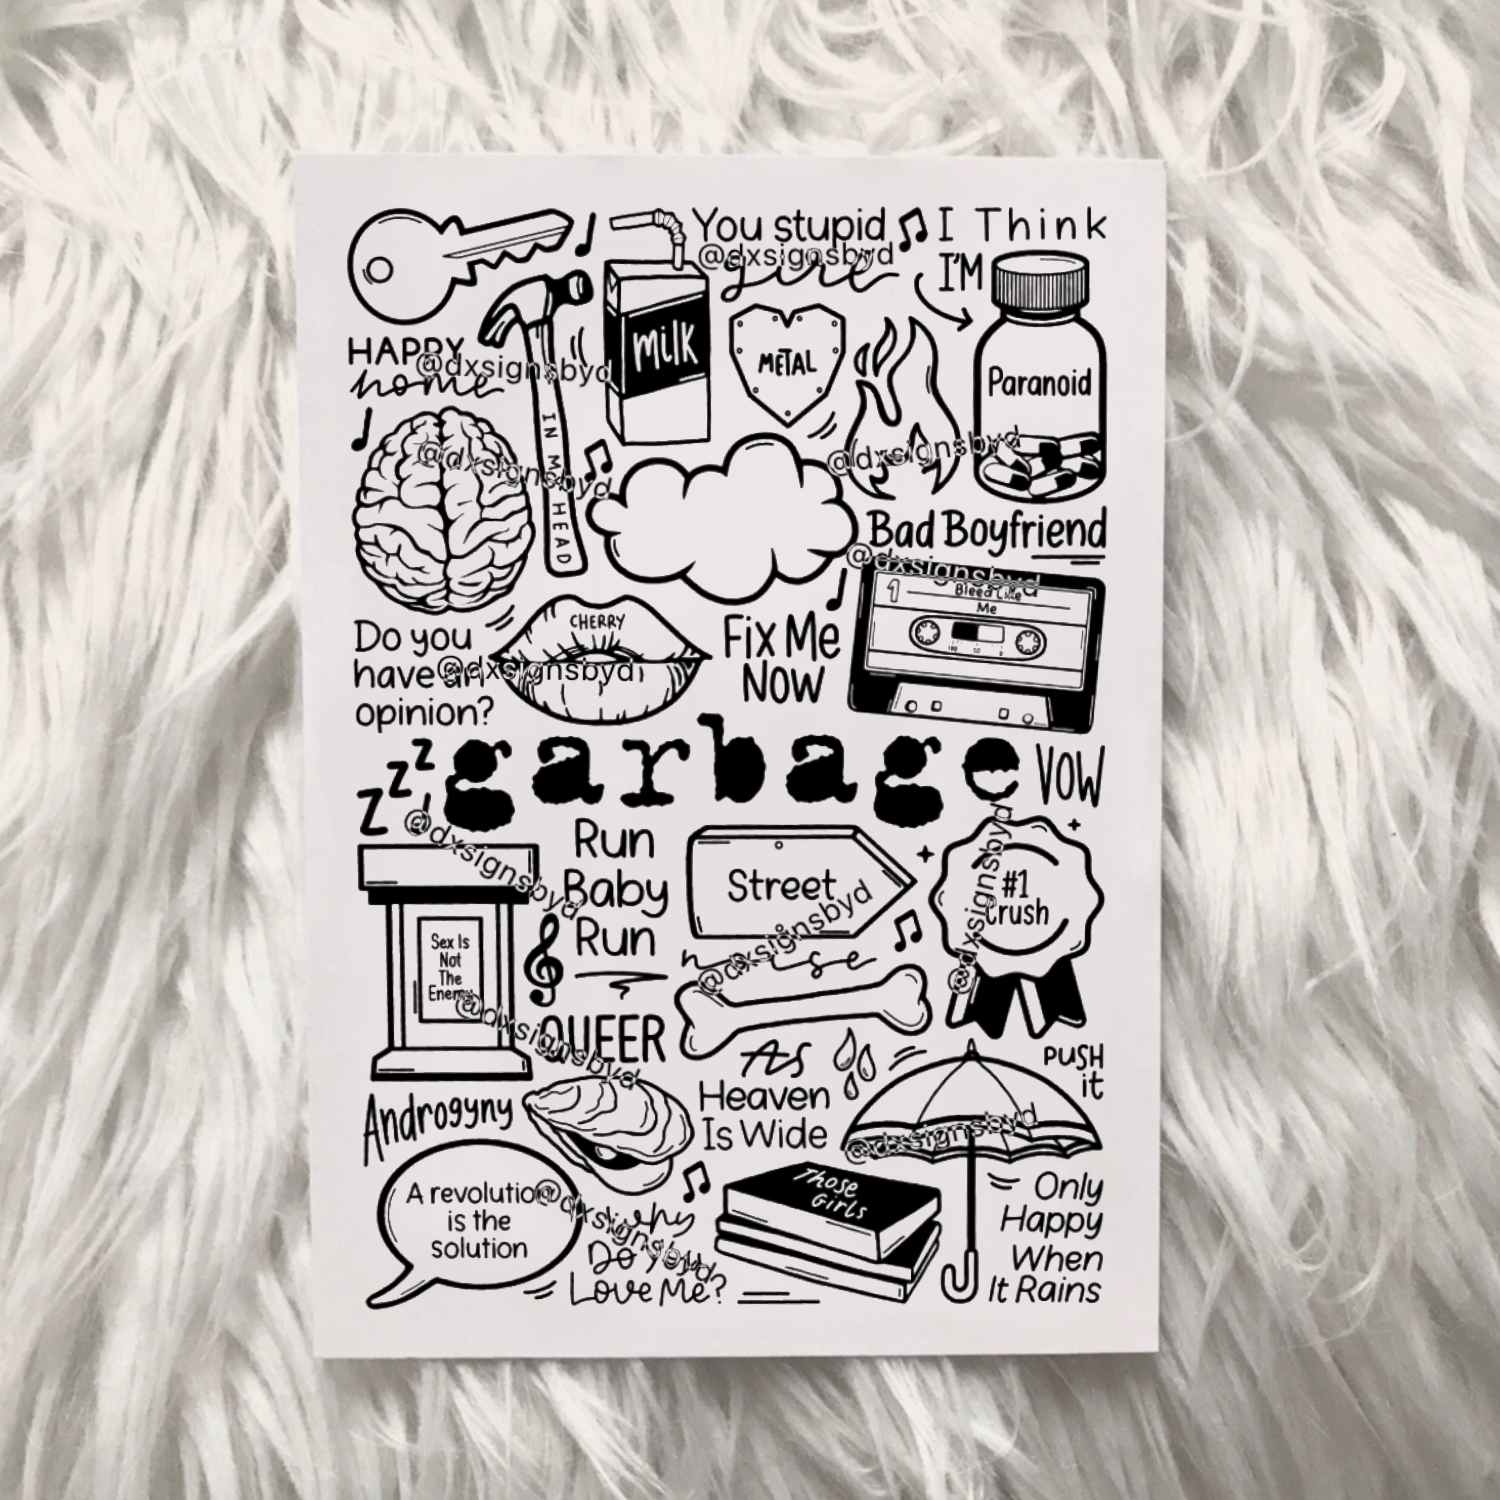 You stupid
girl
@dxsignsbyd
I Think
I'M
milk
METAL
Paranoid
HAPPY
home
@dxsignsbyd
IN MY HEAD
@dxsignsbyd
@dxsignsbyd
Bad Boyfriend
@dxsignsbyd
1
Bleed Like
Me
100 50 0
CHERRY
Do you
have an
opinion?
@dxsignsbyd
Fix Me
NOW
z z z
garbage
VOW
@dxsignsbyd
Run
Baby
Run
Street
@dxsignsbyd
noise
#1
Crush
@dxsignsbyd
Sex Is
Not
The
Enemy
@dxsignsbyd
QUEER
As
Heaven
Is Wide
PUSH
it
Androgyny
@dxsignsbyd
A revolution
is the
solution
@dxsignsbyd
Why
Do you
Love Me?
Those
Girls
Only
Happy
When
It Rains